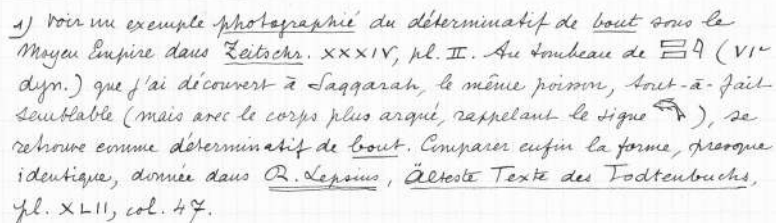 1) Voir un exemple photographié du déterminatif de bout sous le
Moyen Empire dans Zeitschr. XXXIV, pl. II. Au tombeau de (VIe
dyn.) que j'ai découvert à Saggarah, le même poisson, tout-à-fait
semblable (mais avec le corps plus arqué, rappelant le signe ), se
retrouve comme déterminatif de bout. Comparer enfin la forme, presque
identique, donnée dans R. Lepsius, Älteste Texte des Todtenbuchs,
pl. XLII, col. 47.